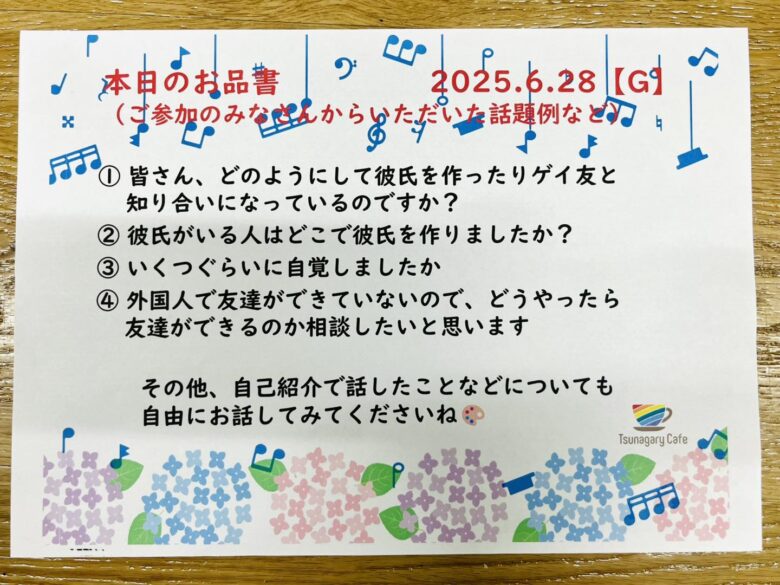 本日のお品書 2025.6.28【G】
（ご参加のみなさんからいただいた話題例など）
① 皆さん、どのようにして彼氏を作ったりゲイ友と
知り合いになっているのですか？
② 彼氏がいる人はどこで彼氏を作りましたか？
③ いくつぐらいに自覚しましたか
④ 外国人で友達ができていないので、どうやったら
友達ができるのか相談したいと思います
その他、自己紹介で話したことなどについても
自由にお話してみてくださいね🎨
Tsunagary Cafe